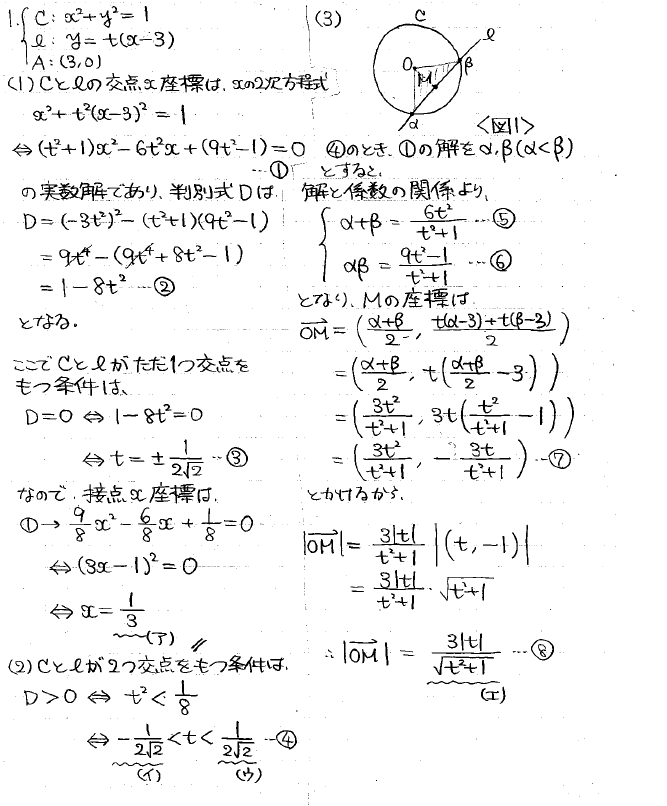 1. { C: x²+y²=1
ℓ: y=t(x-3)
A: (3,0)
(1) Cとℓの交点x座標は、xの2次方程式
x²+t²(x-3)²=1
⇔(t²+1)x²-6t²x+(9t²-1)=0
…①
の実数解であり、判別式Dは
D=(-3t²)²-(t²+1)(9t²-1)
=9t⁴-(9t⁴+8t²-1)
=1-8t² …②
となる.
ここでCとℓがただ1つ交点を
もつ条件は、
D=0 ⇔ 1-8t²=0
⇔ t=±1/(2√2) …③
なので、接点x座標は、
①→ 9/8 x² - 6/8 x + 1/8 = 0
⇔(3x-1)²=0
⇔ x=1/3
(ア)
(2) Cとℓが2つ交点をもつ条件は、
D>0 ⇔ t²<1/8
⇔ -1/(2√2)<t<1/(2√2) …④
(イ) (ウ)
(3)
C
ℓ
O
M
β
α
<図1>
④のとき、①の解をα,β(α<β)
とすると、
解と係数の関係より、
{ α+β=6t²/(t²+1) …⑤
αβ=(9t²-1)/(t²+1) …⑥
となり、Mの座標は
OM→=((α+β)/2, (t(α-3)+t(β-3))/2)
=((α+β)/2, t((α+β)/2-3))
=(3t²/(t²+1), 3t(t²/(t²+1)-1))
=(3t²/(t²+1), -3t/(t²+1)) …⑦
とかけるから、
|OM→|=3|t|/(t²+1) |(t,-1)|
=3|t|/(t²+1)・√(t²+1)
∴|OM→|=3|t|/√(t²+1) …⑧
(エ)